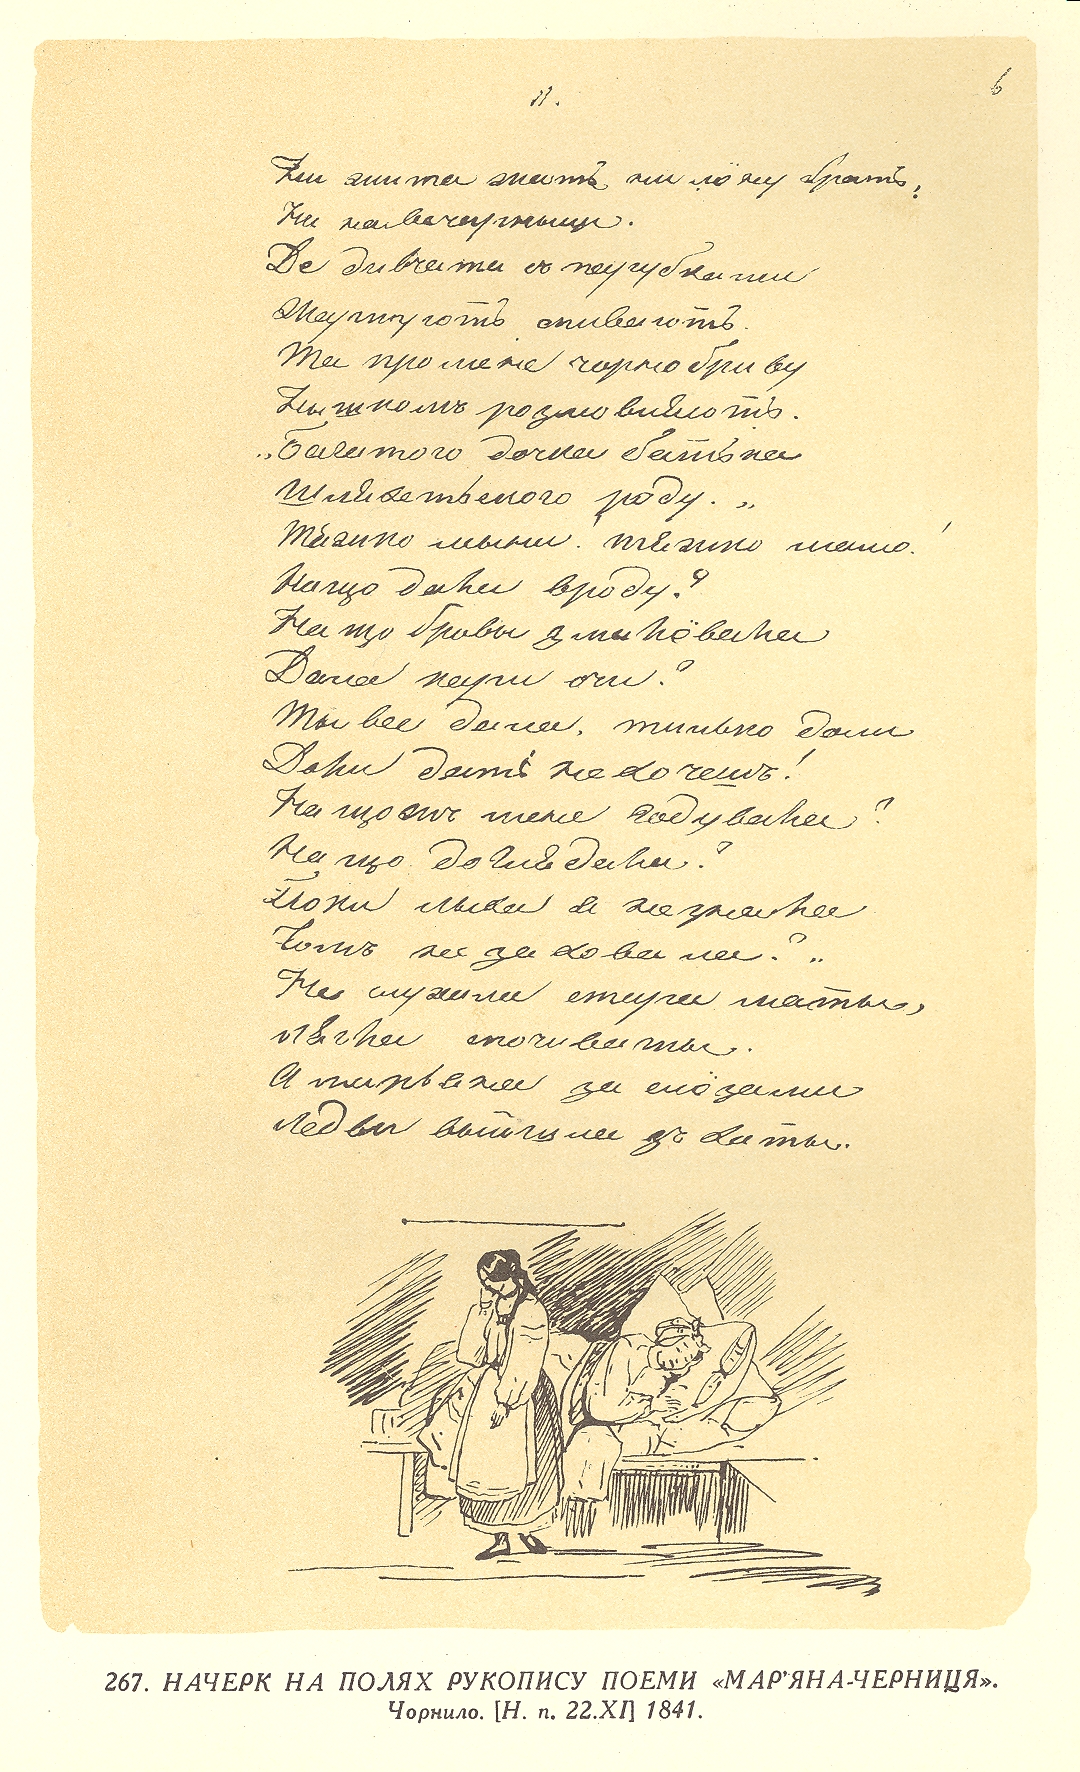 11.
6
Ни жита жать, ни лёну брать,
Ни на вечерныци.
Де дивчата съ парубками
Жартуютъ спиваютъ.
Та про мене чорнобриву
Нышкомъ розмовляютъ.
„Багатого дочка батька
Шляхетьского роду.„
Тяжко мыни! тяжко мамо!
Нащо дала вроду?
На що бровы змалёвала
Дала кари очи?
Ты все дала, тилько доли
Доли дать не хочешъ!
На щожъ мене годувала?
На що доглядала?
Поки лыха я не знала
Чомъ не заховала?„
Не слухала стара маты,
Лягла спочиваты.
А Марьяна за слёзами
Ледвы выйшла зъ хаты.
267. НАЧЕРК НА ПОЛЯХ РУКОПИСУ ПОЕМИ «МАР'ЯНА-ЧЕРНИЦЯ».
Чорнило. [Н. п. 22.XI] 1841.